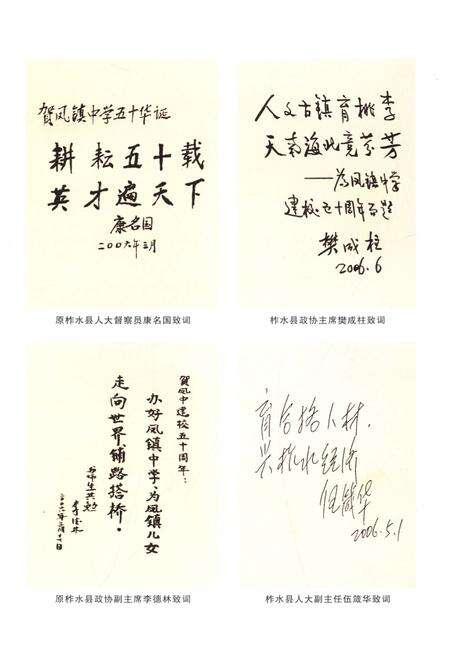 贺凤镇中学五十华诞
耕耘五十载
英才遍天下
康名国
二〇〇六年三月
原柞水县人大督察员康名国致词
人文古镇育桃李
天南海北竞芬芳
——为凤镇中学
建校五十周年而题
樊成柱
2006.6
柞水县政协主席樊成柱致词
贺凤中建校五十周年：
办好凤镇中学、为凤镇儿女
走向世界铺路搭桥。
与师生共勉
李德林
原柞水县政协副主席李德林致词
育合格人材，
兴柞水经济
伍箴华
2006.5.1
柞水县人大副主任伍箴华致词